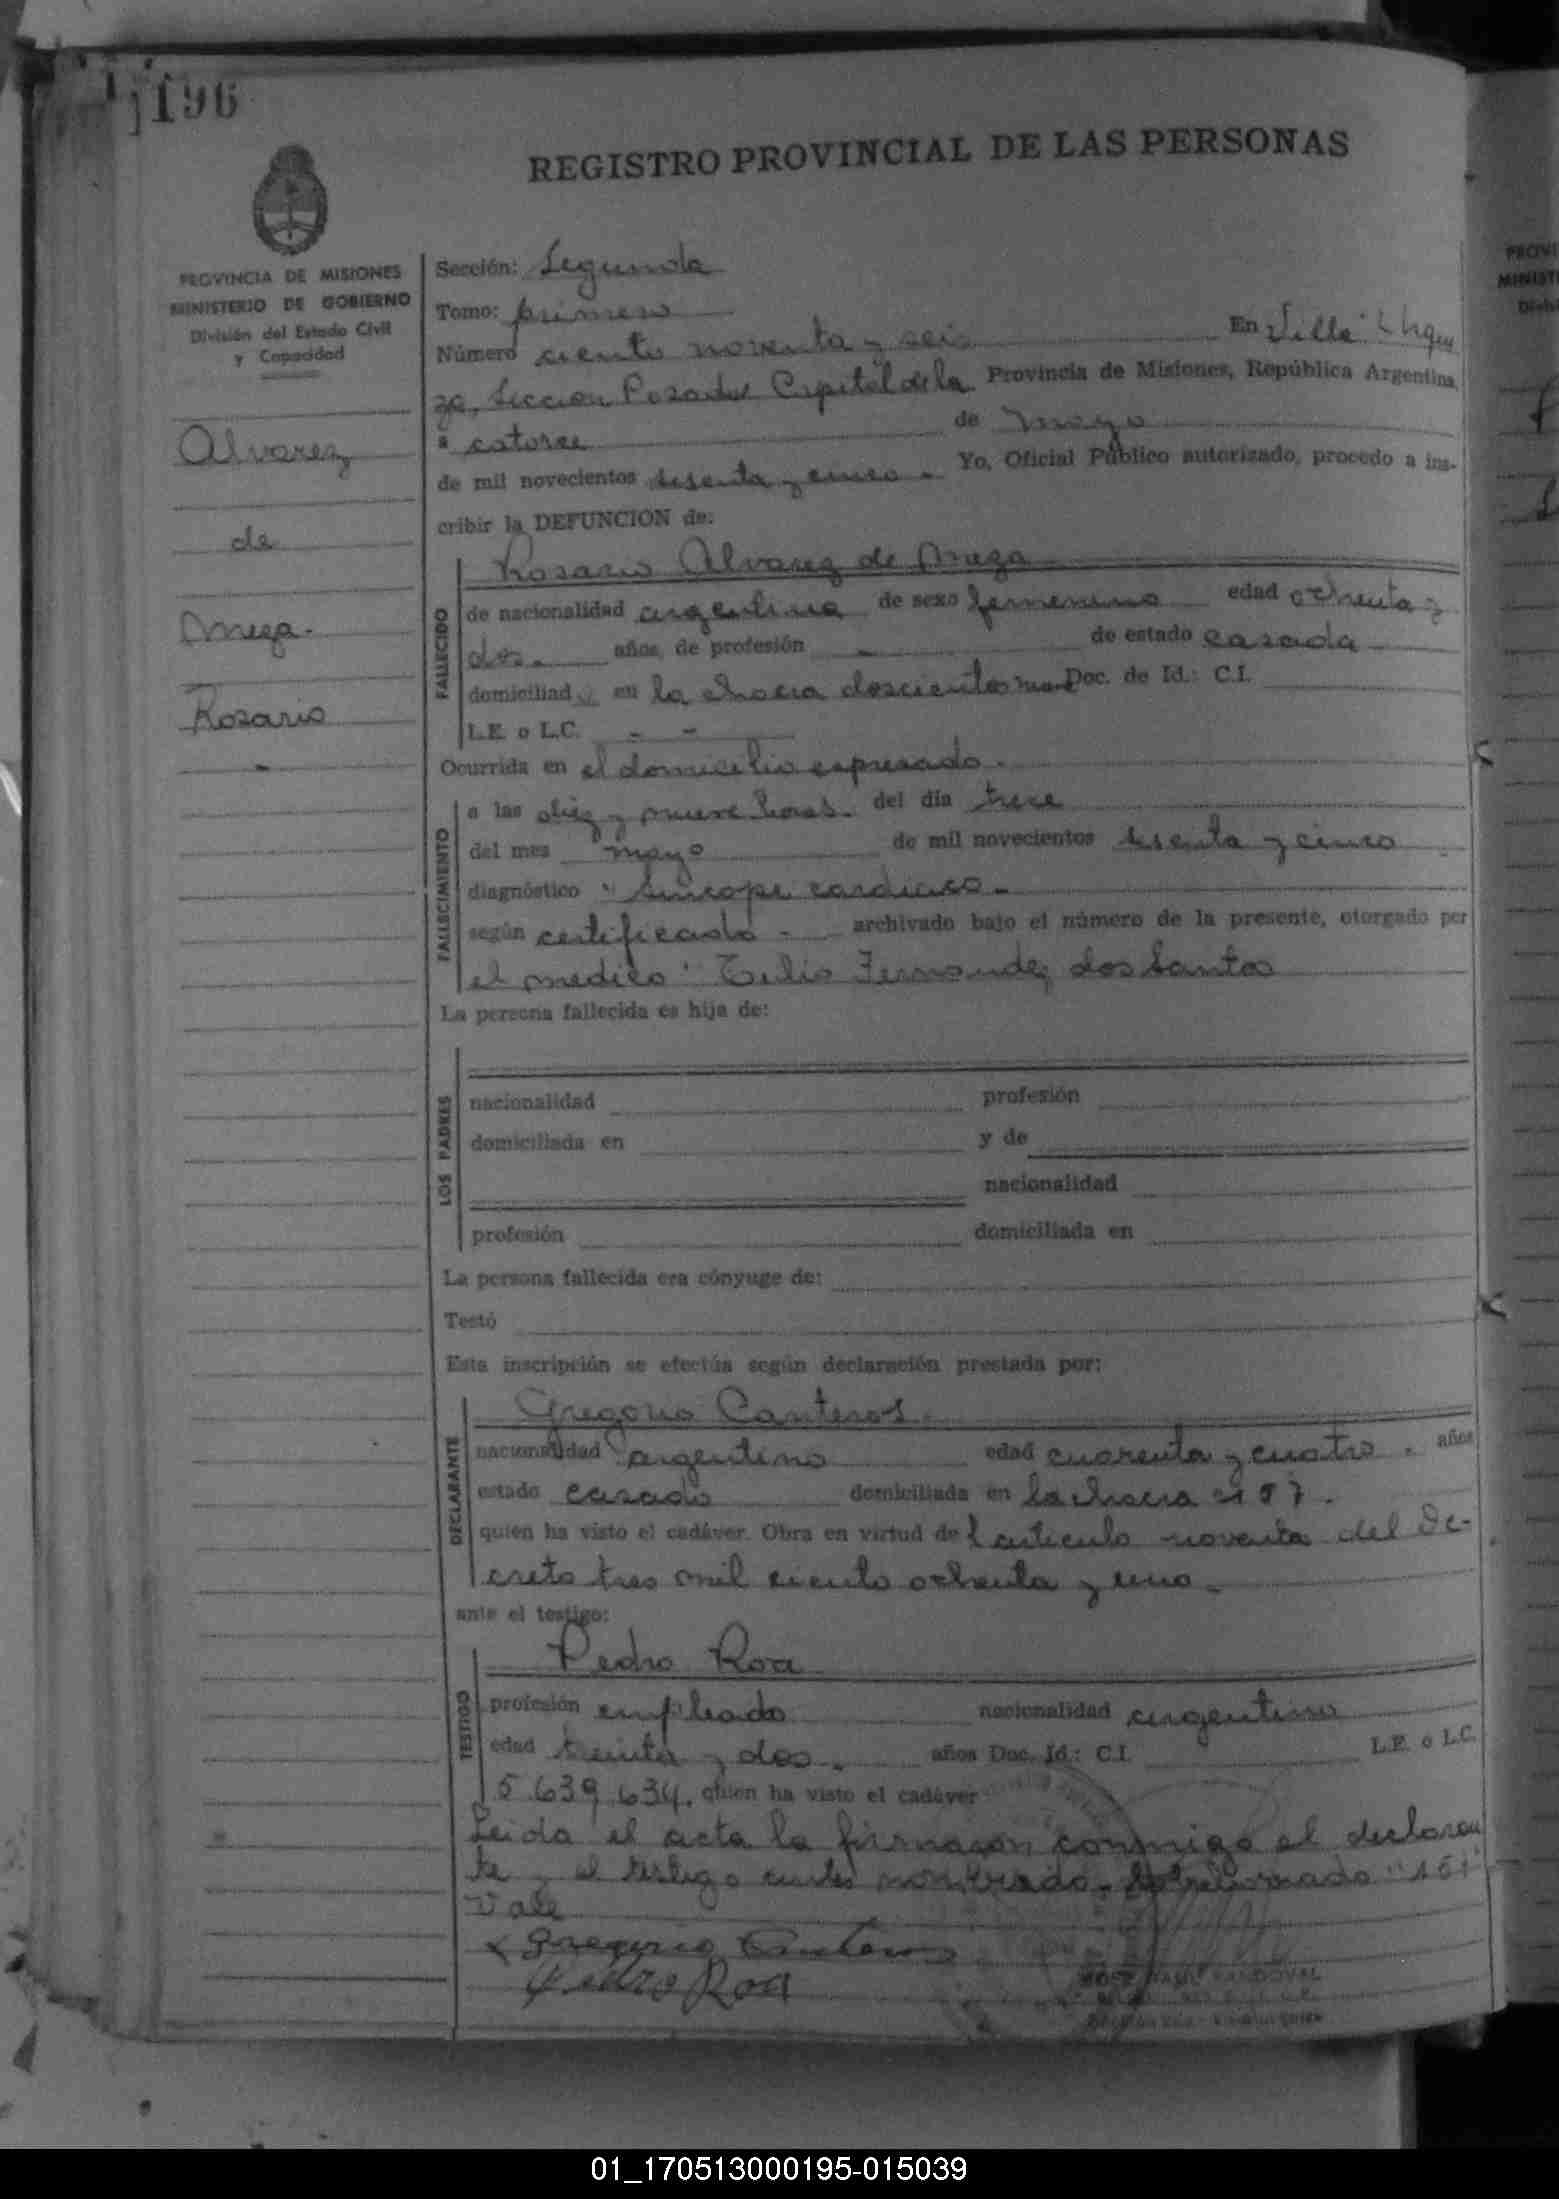 196
REGISTRO PROVINCIAL DE LAS PERSONAS
PROVINCIA DE MISIONES
MINISTERIO DE GOBIERNO
División del Estado Civil
y Capacidad
Alvarez
de
Meza.
Rosario
Sección: Segunda
Tomo: primero
Número ciento noventa y seis En Villa Urqui
za, Sección Posadas Capital de la Provincia de Misiones, República Argentina,
a catorce de mayo
de mil novecientos sesenta y cinco. Yo, Oficial Público autorizado, procedo a ins-
cribir la DEFUNCION de:
FALLECIDO
Rosario Alvarez de Meza
de nacionalidad argentina de sexo femenino edad ochenta y
dos. años, de profesión - de estado casada
domiciliad en la chacra doscientos Doc. de Id.: C.I.
L.E. o L.C. - -
Ocurrida en el domicilio expresado.
FALLECIMIENTO
a las diez y nueve horas. del día trece
del mes mayo de mil novecientos sesenta y cinco
diagnóstico "sincope cardiaco.
según certificado - archivado bajo el número de la presente, otorgado por
el medico Fernandez dos Santos
La persona fallecida es hija de:
LOS PADRES
nacionalidad profesión
domiciliada en y de
nacionalidad
profesión domiciliada en
La persona fallecida era cónyuge de:
Testó
Esta inscripción se efectúa según declaración prestada por:
DECLARANTE
Gregorio Canteros.
nacionalidad argentino edad cuarenta y cuatro. años
estado casado domiciliada en la chacra
quien ha visto el cadáver. Obra en virtud del articulo noventa del De-
creto tres mil ciento ochenta y uno.
ante el testigo:
TESTIGO
Pedro Roa
profesión empleado nacionalidad argentino
edad treinta y dos. años Doc. Id.: C.I. L.E. o L.C.
5.639.634. quien ha visto el cadáver
Leida el acta la firmaron conmigo el declaran
te y el testigo antes nombrado.
Vale
Gregorio Canteros
Pedro Roa
SANDOVAL
PROVI
MINIST
01_170513000195-015039